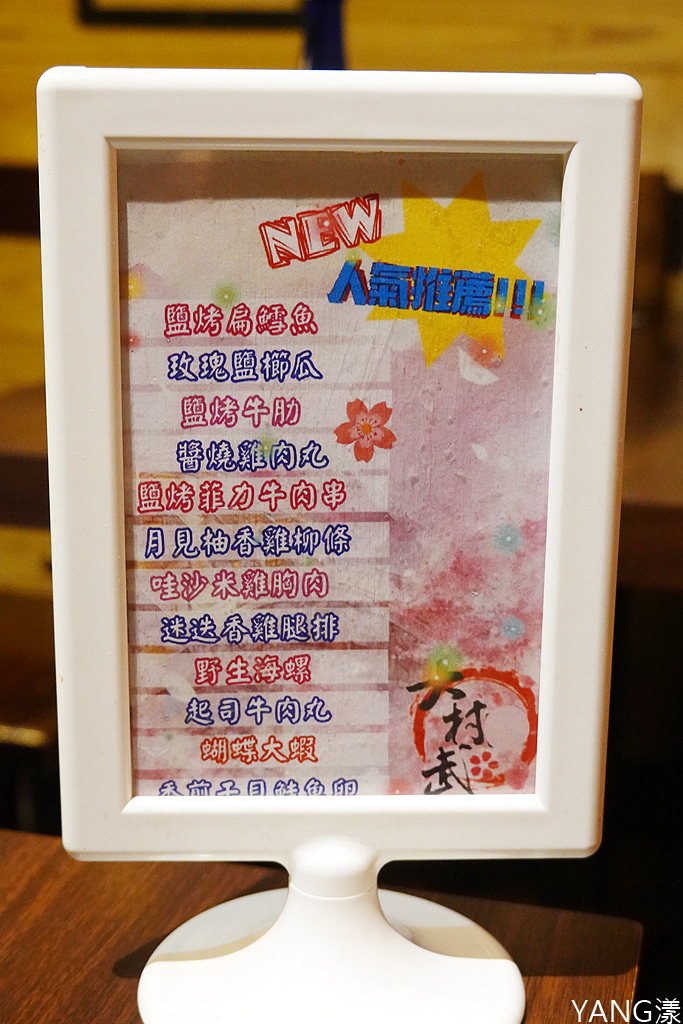 NEW
人氣推薦!!!
鹽烤扁鱈魚
玫瑰鹽櫛瓜
鹽烤牛肋
醬燒雞肉丸
鹽烤菲力牛肉串
月見柚香雞柳條
哇沙米雞胸肉
迷迭香雞腿排
野生海螺
起司牛肉丸
蝴蝶大蝦
香煎干貝鮭魚卵
大村武
YANG漾